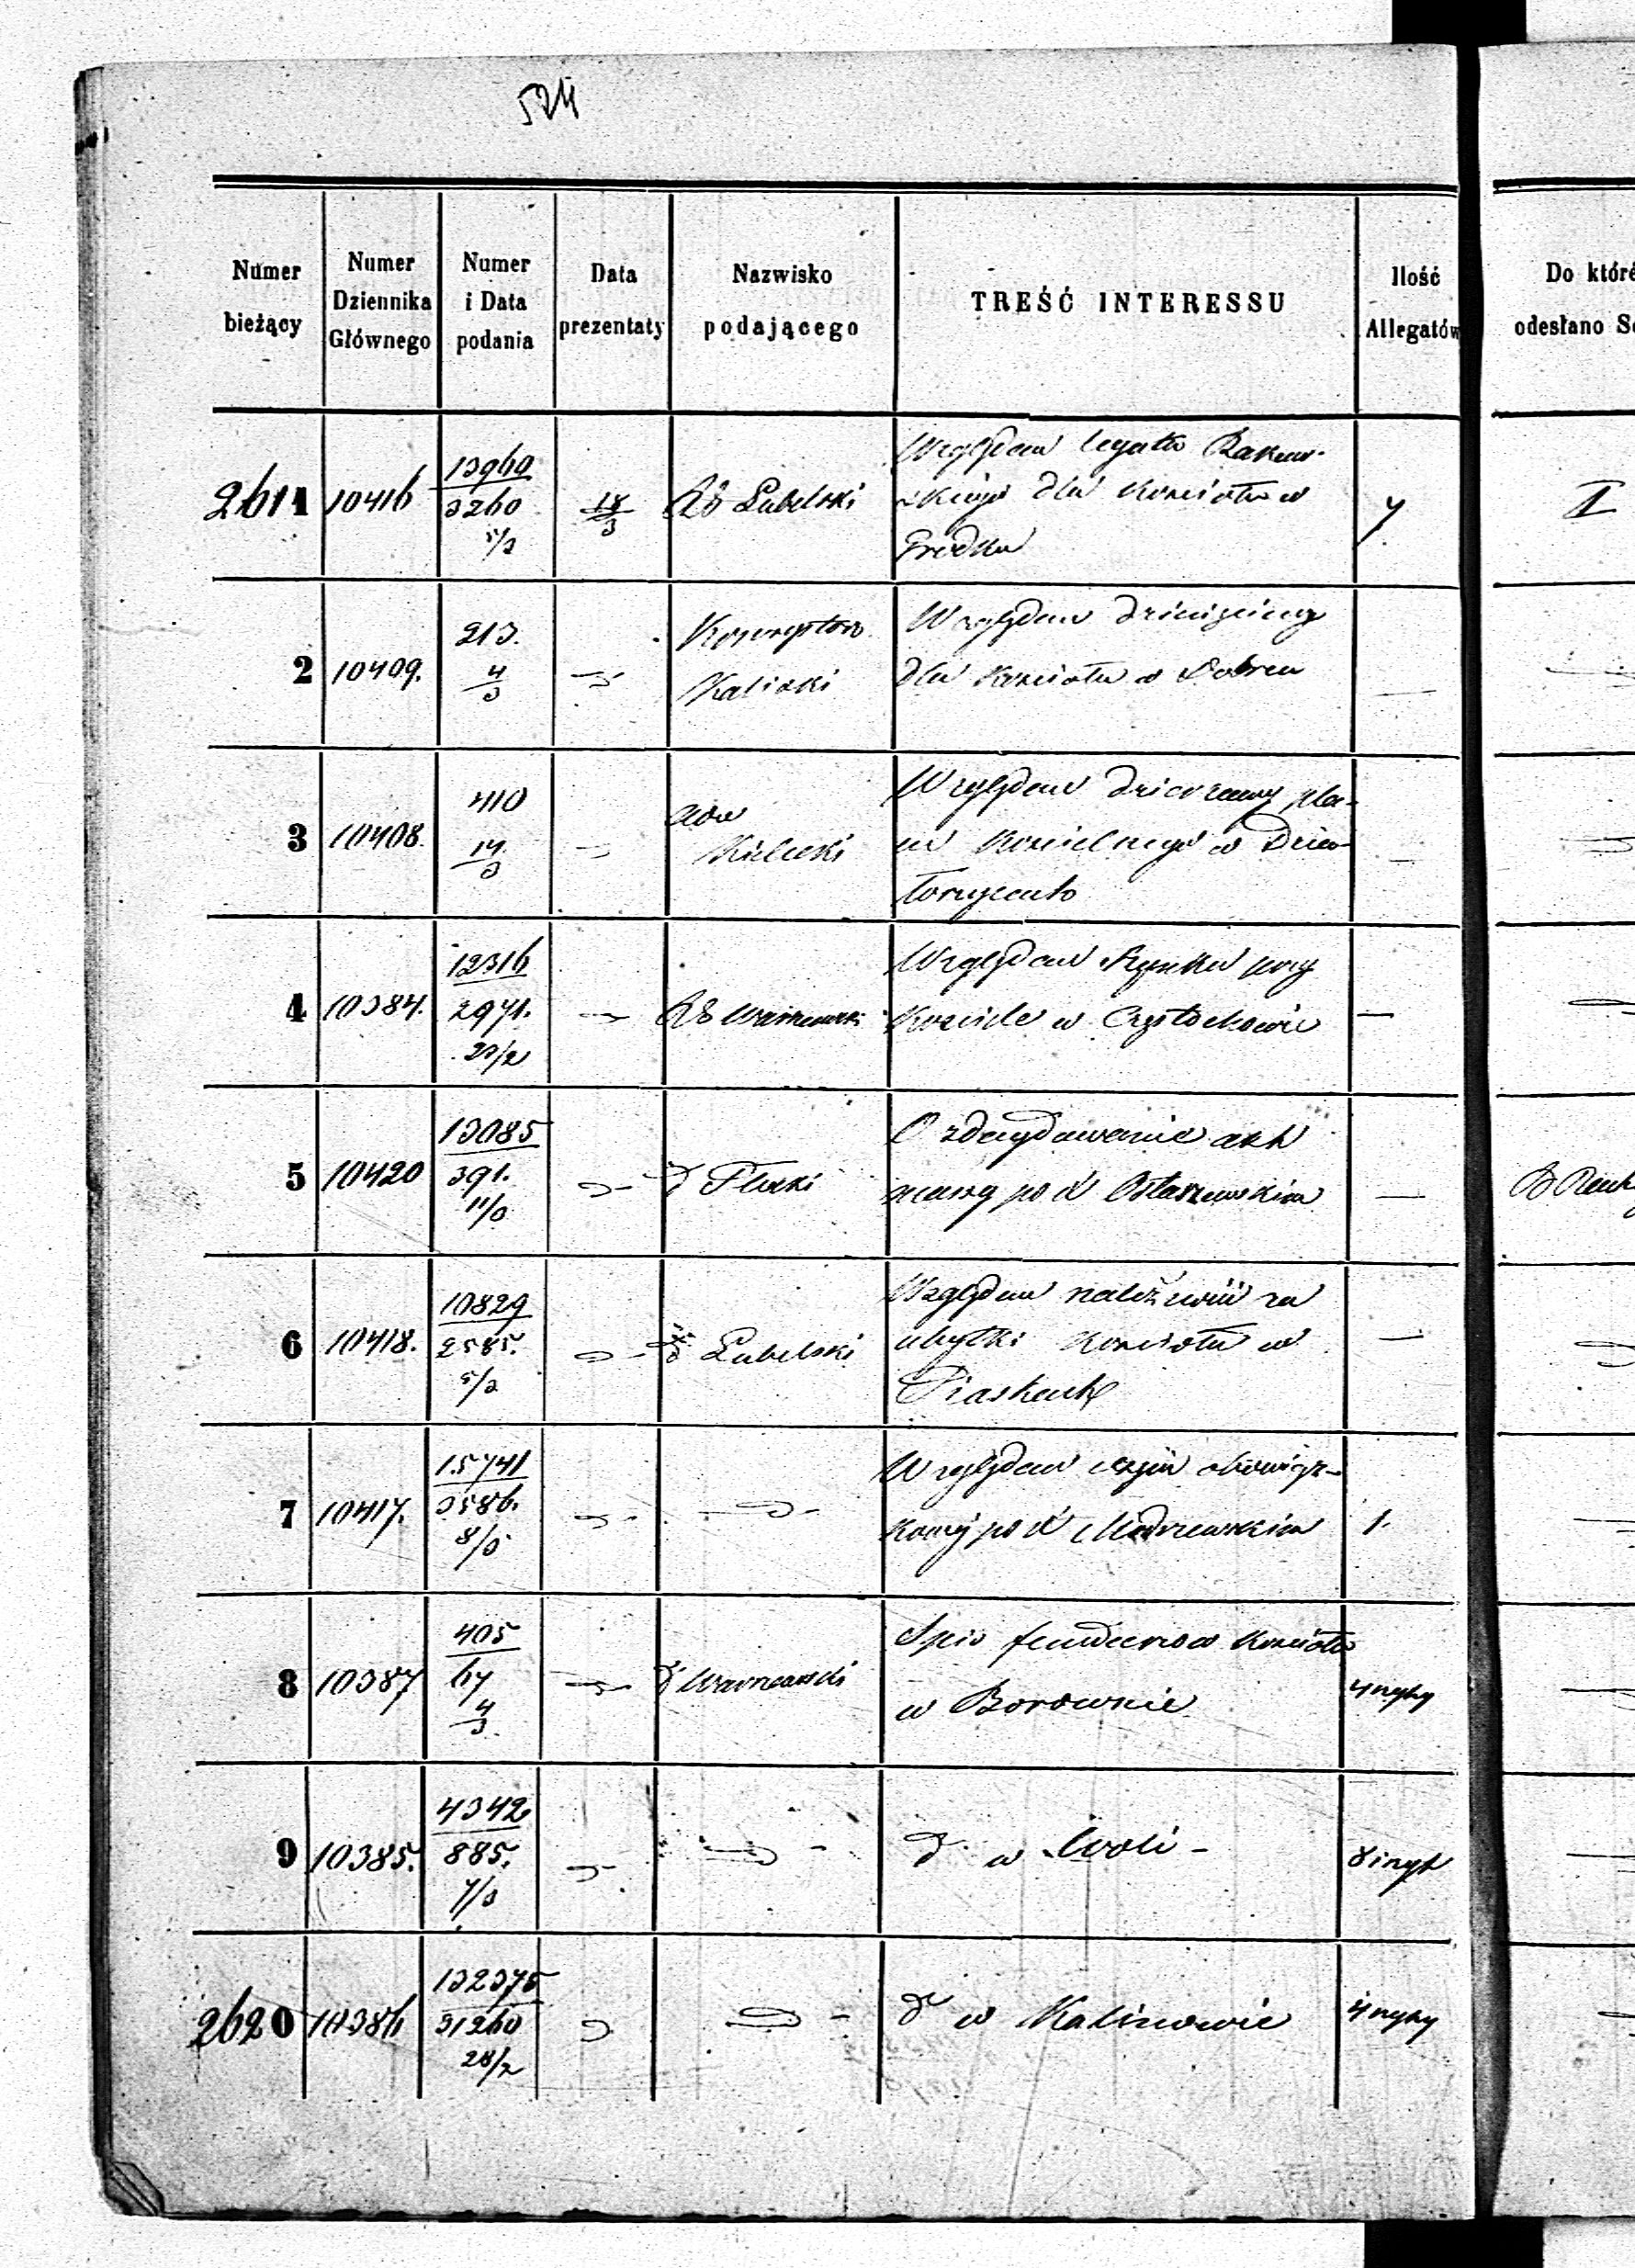 524
Numer bieżący
Numer Dziennika Głównego
Numer i Data podania
Data prezentaty
Nazwisko podającego
TREŚĆ INTERESSU
Ilość Allegatów
Do któr
odesłano S
2611 10416 13960 3260 5/3 18/3 Lubelski Względem legatu Rakow-
skiego dla Kościoła w
Gródku 7 II
2 10409. 213. 4/3 Kaliski Względem dziesięciny
dla Kościoła w Dobrcu
3 10408. 410 14/3 Kielecki Względem dzierżawy pla-
cu Kościelnego w Dzia-
łoszycach
4 10384. 12316 2971. 23/2 Warszawski Względem Rynku przy
Kościele w Częstochowie
5 10420 13085 391. 11/3 Płocki O zdecydowanie akt
massy po X Ostaszewskim
6 10418. 10829 2585. 5/3 Lubelski Względem należności za
ubytki Kościoła w
Piaskach
7 10417. 15741 3586. 8/3 Względem
po X Modrzewskim 1.
8 10387 405 67 4/3 Warszawski Spis funduszów Kościoła
w Borownie
9 10385. 4342 885. 7/3 d w Woli
2620 10386 132375 31260 28/2 d w Kalinowie